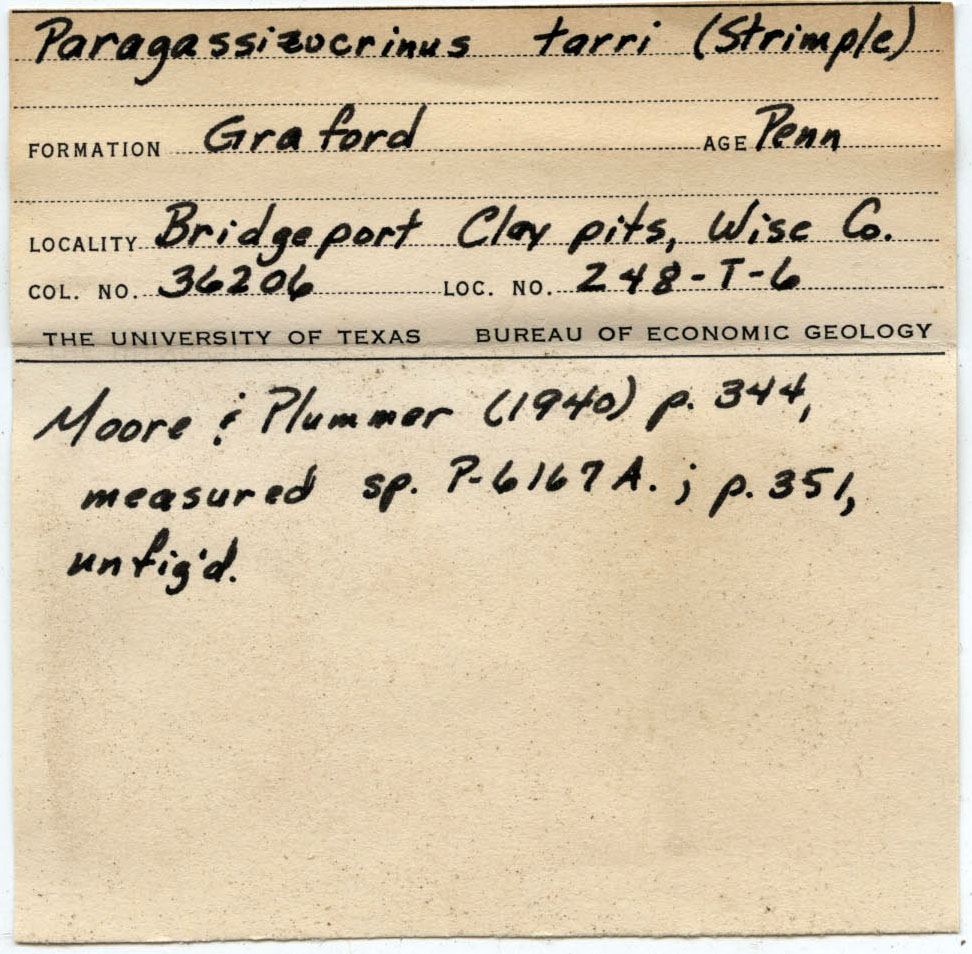 Paragassizocrinus tarri (Strimple)
FORMATION Graford AGE Penn
LOCALITY Bridgeport Clay pits, Wise Co.
COL. NO. 36206 LOC. NO. 248-T-6
THE UNIVERSITY OF TEXAS BUREAU OF ECONOMIC GEOLOGY
Moore & Plummer (1940) p. 344,
measured sp. P-6167A. ; p. 351,
unfig'd.